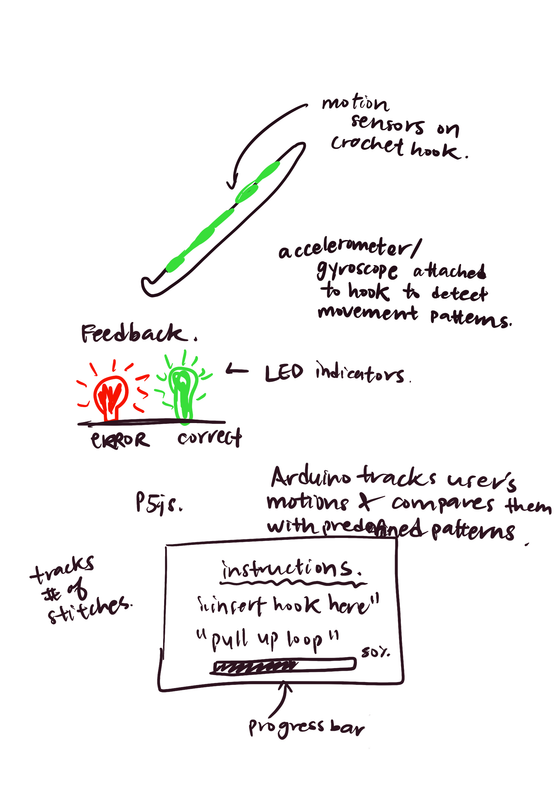 motion
sensors on
crochet hook.
accelerometer/
gyroscope attached
to hook to detect
movement patterns.
Feedback.
LED indicators.
ERROR correct
Arduino tracks user's
motions & compares them
with predefined patterns.
P5js.
tracks
# of
stitches.
instructions.
"insert hook here"
"pull up loop"
50%.
progress bar